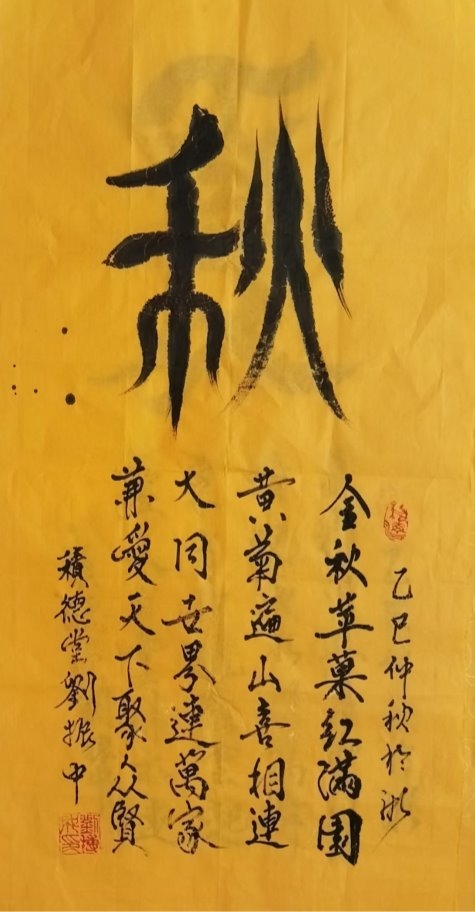 秋
乙巳仲秋於浙
金秋草菓红滿園
黄菊遍山喜相連
大同世界連萬家
兼愛天下聚众賢
積德堂劉振中